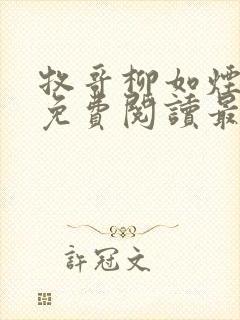 牧哥柳如煙
免費閱讀最
許冠文